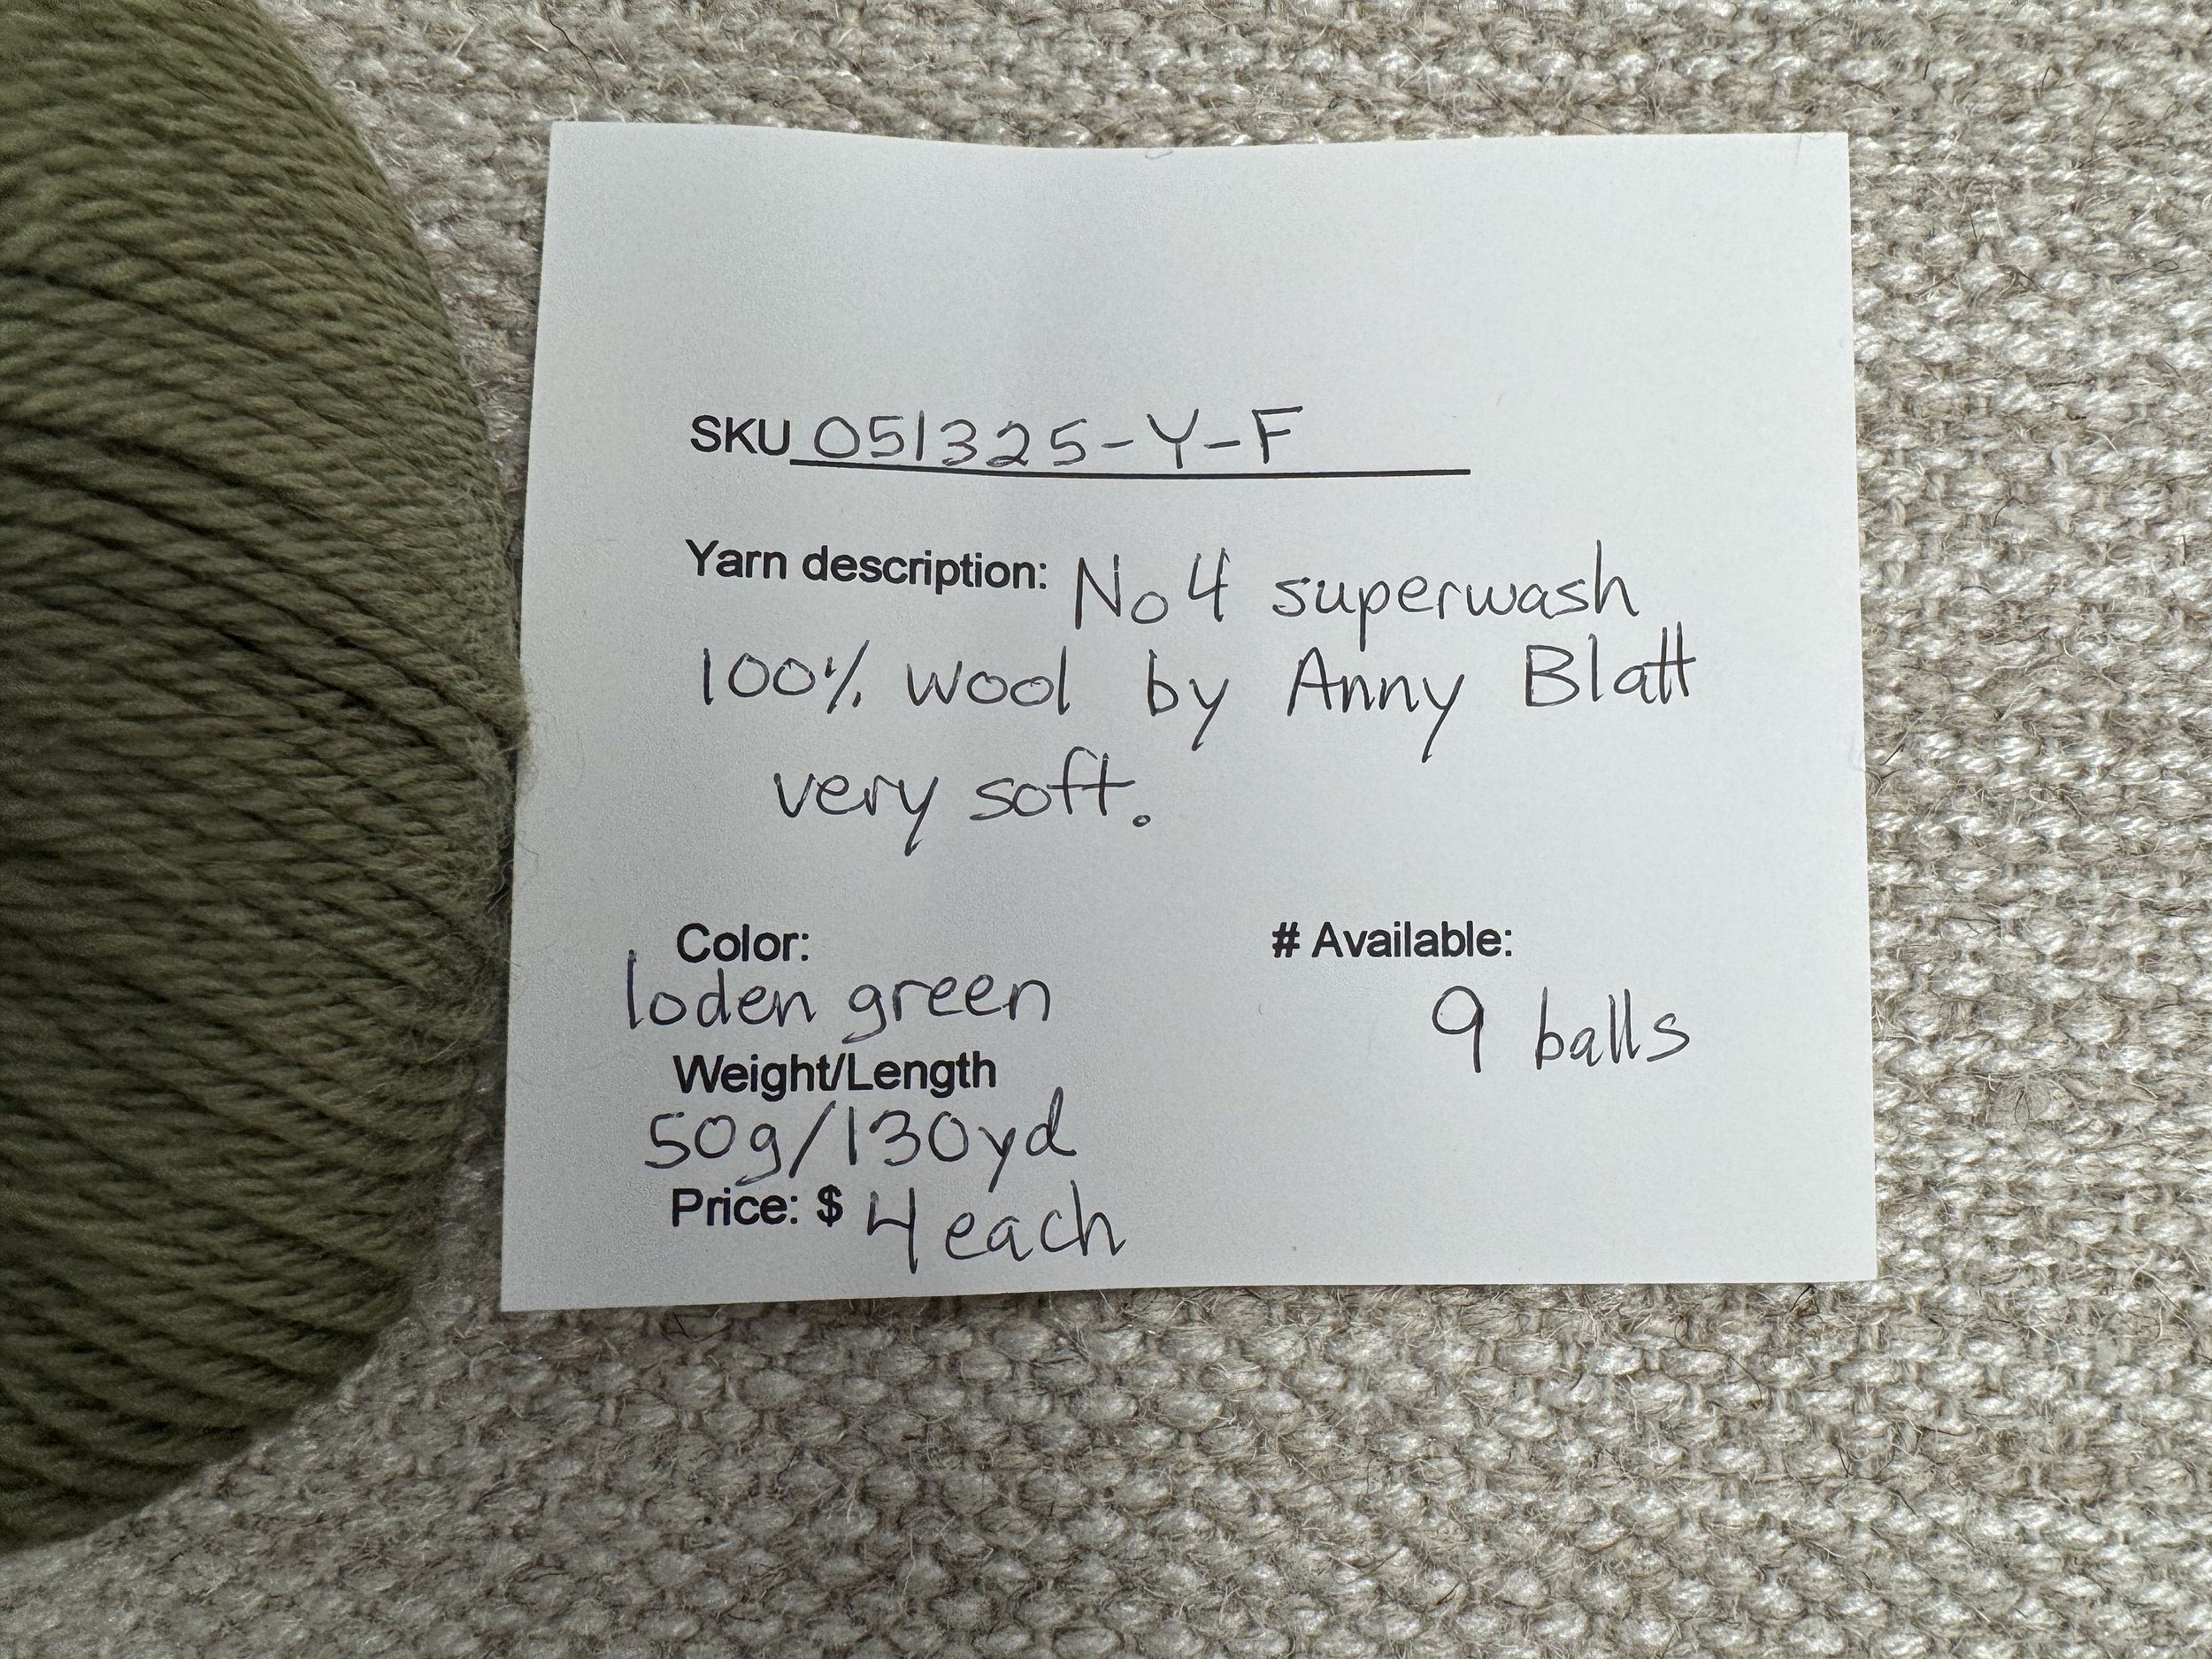 SKU 051325-Y-F
Yarn description: No 4 superwash
100% wool by Anny Blatt
very soft.
Color:
loden green
# Available:
9 balls
Weight/Length
50g/130yd
Price: $ 4 each